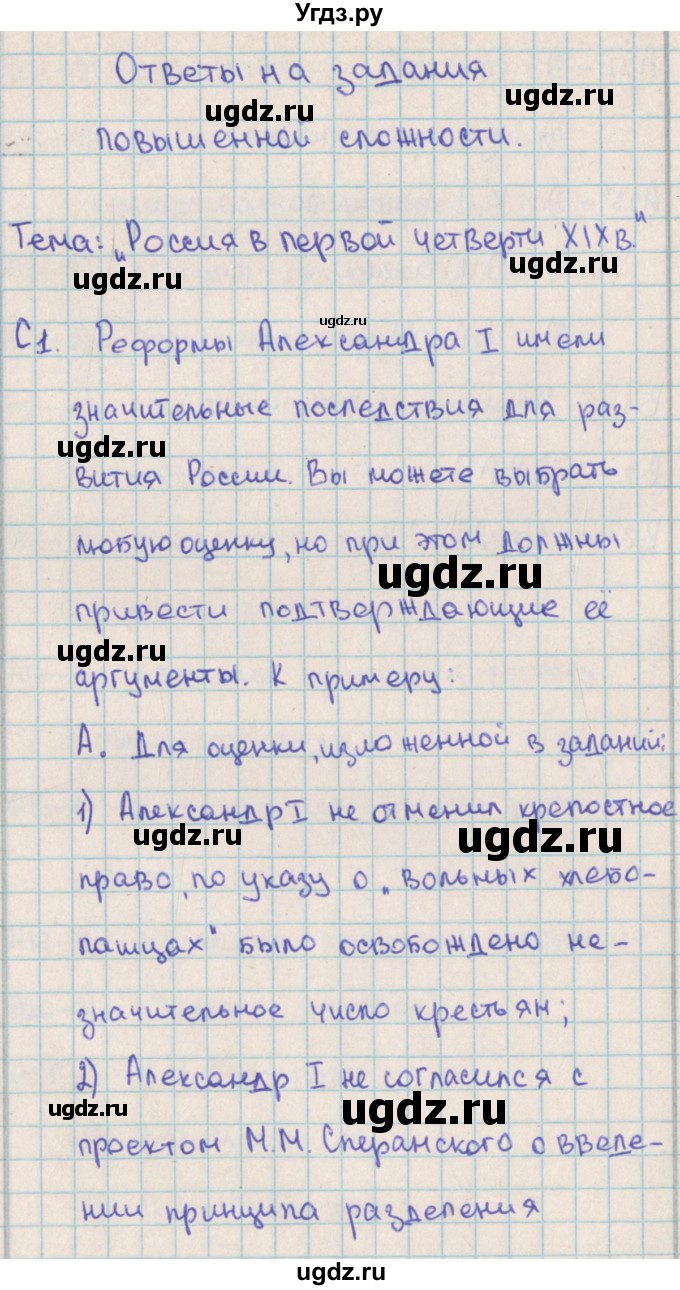 Угдз.ру
Ответы на задания
ugdz.ru
ugdz.ru
повышенной сложности.
Тема: „Россия в первой четверти XIX в."
ugdz.ru
ugdz.ru
ugdz.ru
С1. Реформы Александра I имели
значительные последствия для раз-
ugdz.ru
вития России. Вы можете выбрать
любую оценку, но при этом должны
ugdz.ru
привести подтверждающие её
ugdz.ru
аргументы. К примеру:
А. Для оценки, изложенной в задании:
1) Александр I не отменил крепостное
ugdz.ru
ugdz.ru
право, по указу о „вольных хлебо-
пашцах" было освобождено не-
значительное число крестьян;
2) Александр I не согласился с
ugdz.ru
ugdz.ru
проектом М.М. Сперанского о введе-
нии принципа разделения
ugdz.ru